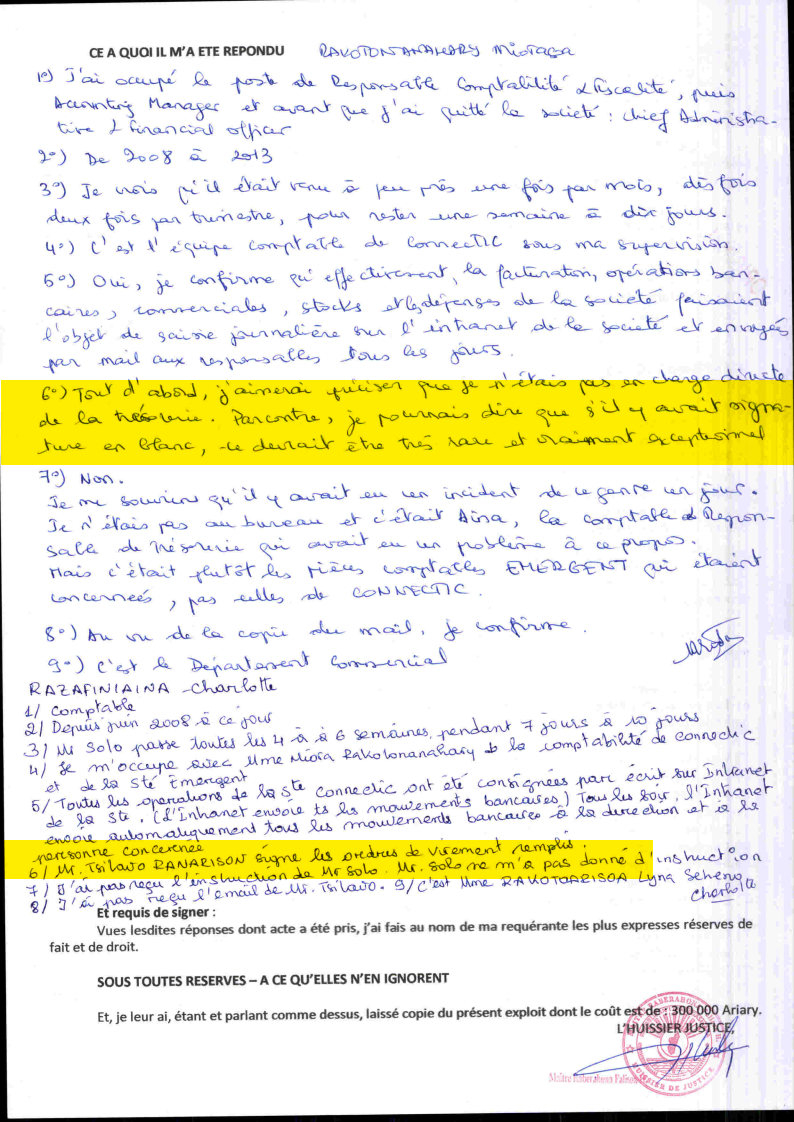 CE A QUOI IL M'A ETE REPONDU RAKOTONANAHARY Miora
1°) J'ai occupé le poste de Responsable Comptabilité & Fiscalité, puis
Accounting Manager et avant que j'ai quitté la société : Chief Administra-
tive & Financial officer
2°) De 2008 à 2013
3°) Je crois qu'il était venu à peu près une fois par mois, dès fois
deux fois par trimestre, pour rester une semaine à dix jours.
4°) C'est l'équipe comptable de ConnecTIC sous ma supervision.
5°) Oui, je confirme qu'effectivement, la facturation, opérations ban-
caires, commerciales, stocks et les dépenses de la société faisaient
l'objet de saisie journalière sur l'intranet de la société et envoyés
par mail aux responsables tous les jours.
6°) Tout d'abord, j'aimerai préciser que je n'étais pas en charge directe
de la trésorerie. Parcontre, je pourrais dire que s'il y avait signa-
ture en blanc, ce devrait être très rare et vraiment exceptionnel
7°) Non.
Je me souviens qu'il y avait eu un incident de ce genre un jour.
Je n'étais pas au bureau et c'était Aina, la comptable & Respon-
sable de Trésorerie qui avait eu un problème à ce propos.
Mais c'était plutôt les pièces comptables EMERGENT qui étaient
concernées, pas celles de CONNECTIC.
8°) Au vu de la copie du mail, je confirme.
9°) C'est le Département Commercial
RAZAFINIAINA Charlotte
1/ Comptable
2/ Depuis juin 2008 à ce jour
3/ Mr Solo passe toutes les 4 à 6 semaines, pendant 7 jours à 10 jours
4/ Je m'occupe avec Mme Miora Rakotonanahary de la comptabilité de connectic
et de la Sté Emergent
5/ Toutes les operations de la Ste connectic ont été consignées par écrit sur Intranet
de la Ste, (l'Intranet envoie ts les mouvements bancaires) Tous les soir, l'Intranet
envoie automatiquement tous les mouvements bancaires à la direction et à la
personne concernée
6/ Mr. Tsilavo RANARISON signe les ordres de virement remplis.
7/ J'ai pas reçu l'instruction de Mr Solo. Mr. Solo ne m'a pas donné d'instruction
8/ J'ai pas reçu l'email de Mr. Tsilavo. 9/ c'est Mme RAKOTOARISOA Lyna
Charlotte
Et requis de signer :
Vues lesdites réponses dont acte a été pris, j'ai fais au nom de ma requérante les plus expresses réserves de
fait et de droit.
SOUS TOUTES RESERVES – A CE QU'ELLES N'EN IGNORENT
Et, je leur ai, étant et parlant comme dessus, laissé copie du présent exploit dont le coût est de : 300 000 Ariary.
L'HUISSIER JUSTICE,
HUISSIER DE JUSTICE